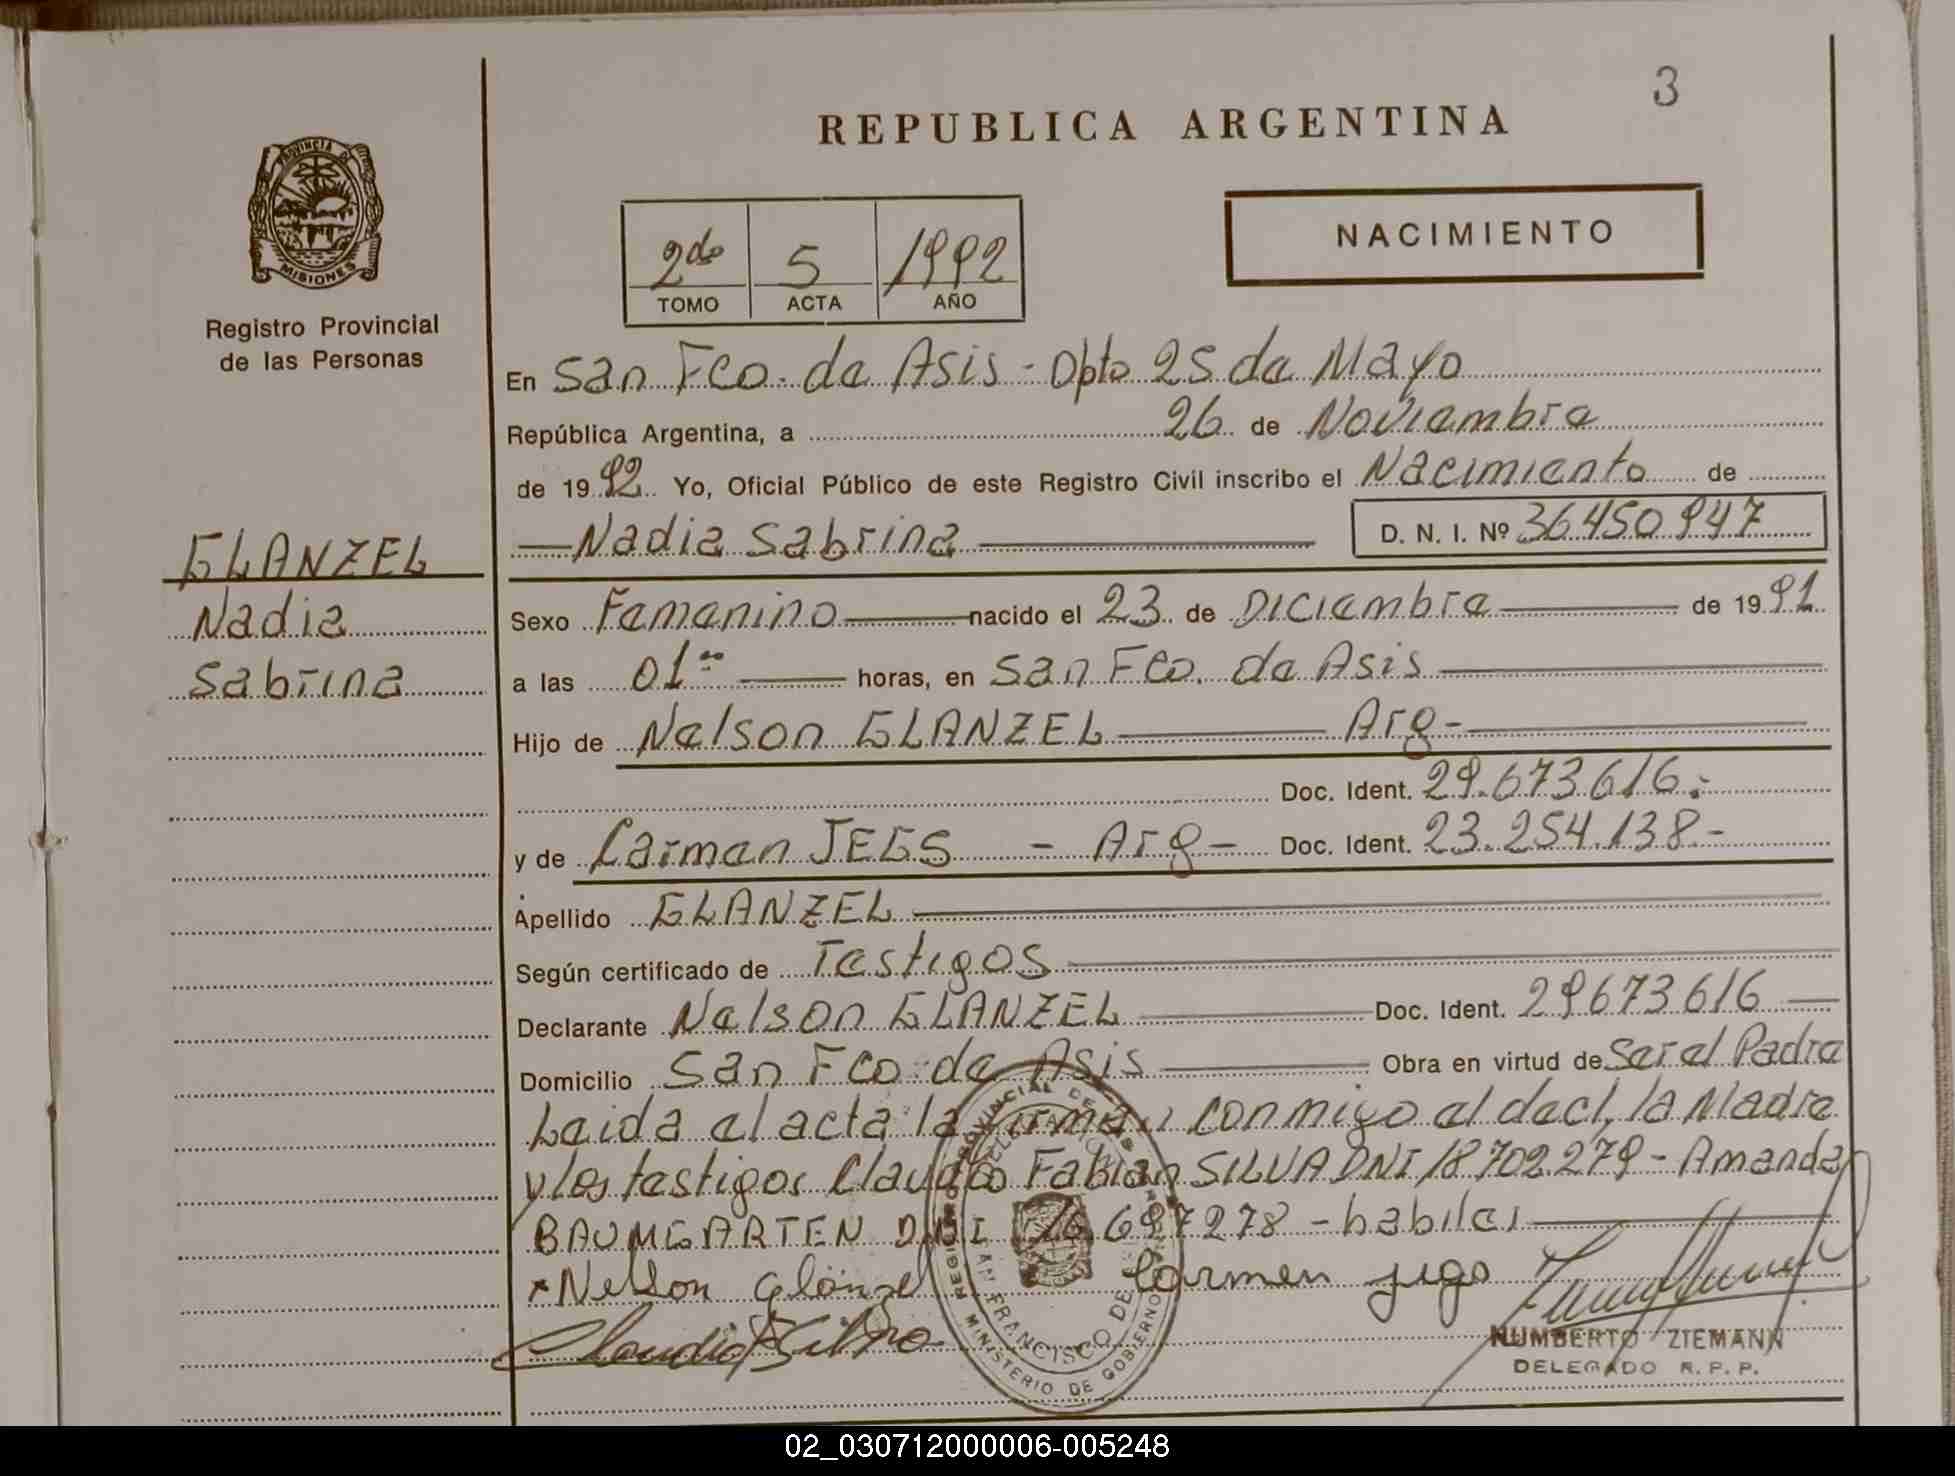 3
REPUBLICA ARGENTINA
PROVINCIA DE
MISIONES
Registro Provincial
de las Personas
2do 5 1992
TOMO ACTA AÑO
NACIMIENTO
En San Fco. de Asis - Dpto 25 de Mayo
República Argentina, a 26 de Noviembre
de 1992 Yo, Oficial Público de este Registro Civil inscribo el Nacimiento de
Nadia Sabrina D. N. I. Nº 36.450.947
GLANZEL
Nadia
Sabrina
Sexo Femenino nacido el 23 de Diciembre de 1991
a las 01 horas, en San Fco. de Asis
Hijo de Nelson GLANZEL Arg-
Doc. Ident. 29.673.616.-
y de Carmen JEGS - Arg - Doc. Ident. 23.254.138.-
Apellido GLANZEL
Según certificado de Testigos
Declarante Nelson GLANZEL Doc. Ident. 29673616
Domicilio San Fco. de Asis Obra en virtud de Ser el Padre
Leida el acta la firman conmigo el decl, la Madre
y los testigos Claudio Fabian SILVA DNI 18702279 - Amanda
BAUMGARTEN DNI 16.697278 - habiles
Nelson Glänzel Carmen jegs
Claudio F Silva
HUMBERTO ZIEMANN
DELEGADO R. P. P.
REGISTRO PROVINCIAL DE LAS
DELEGACION
SAN FRANCISCO DE
MINISTERIO DE GOBIERNO
02_030712000006-005248